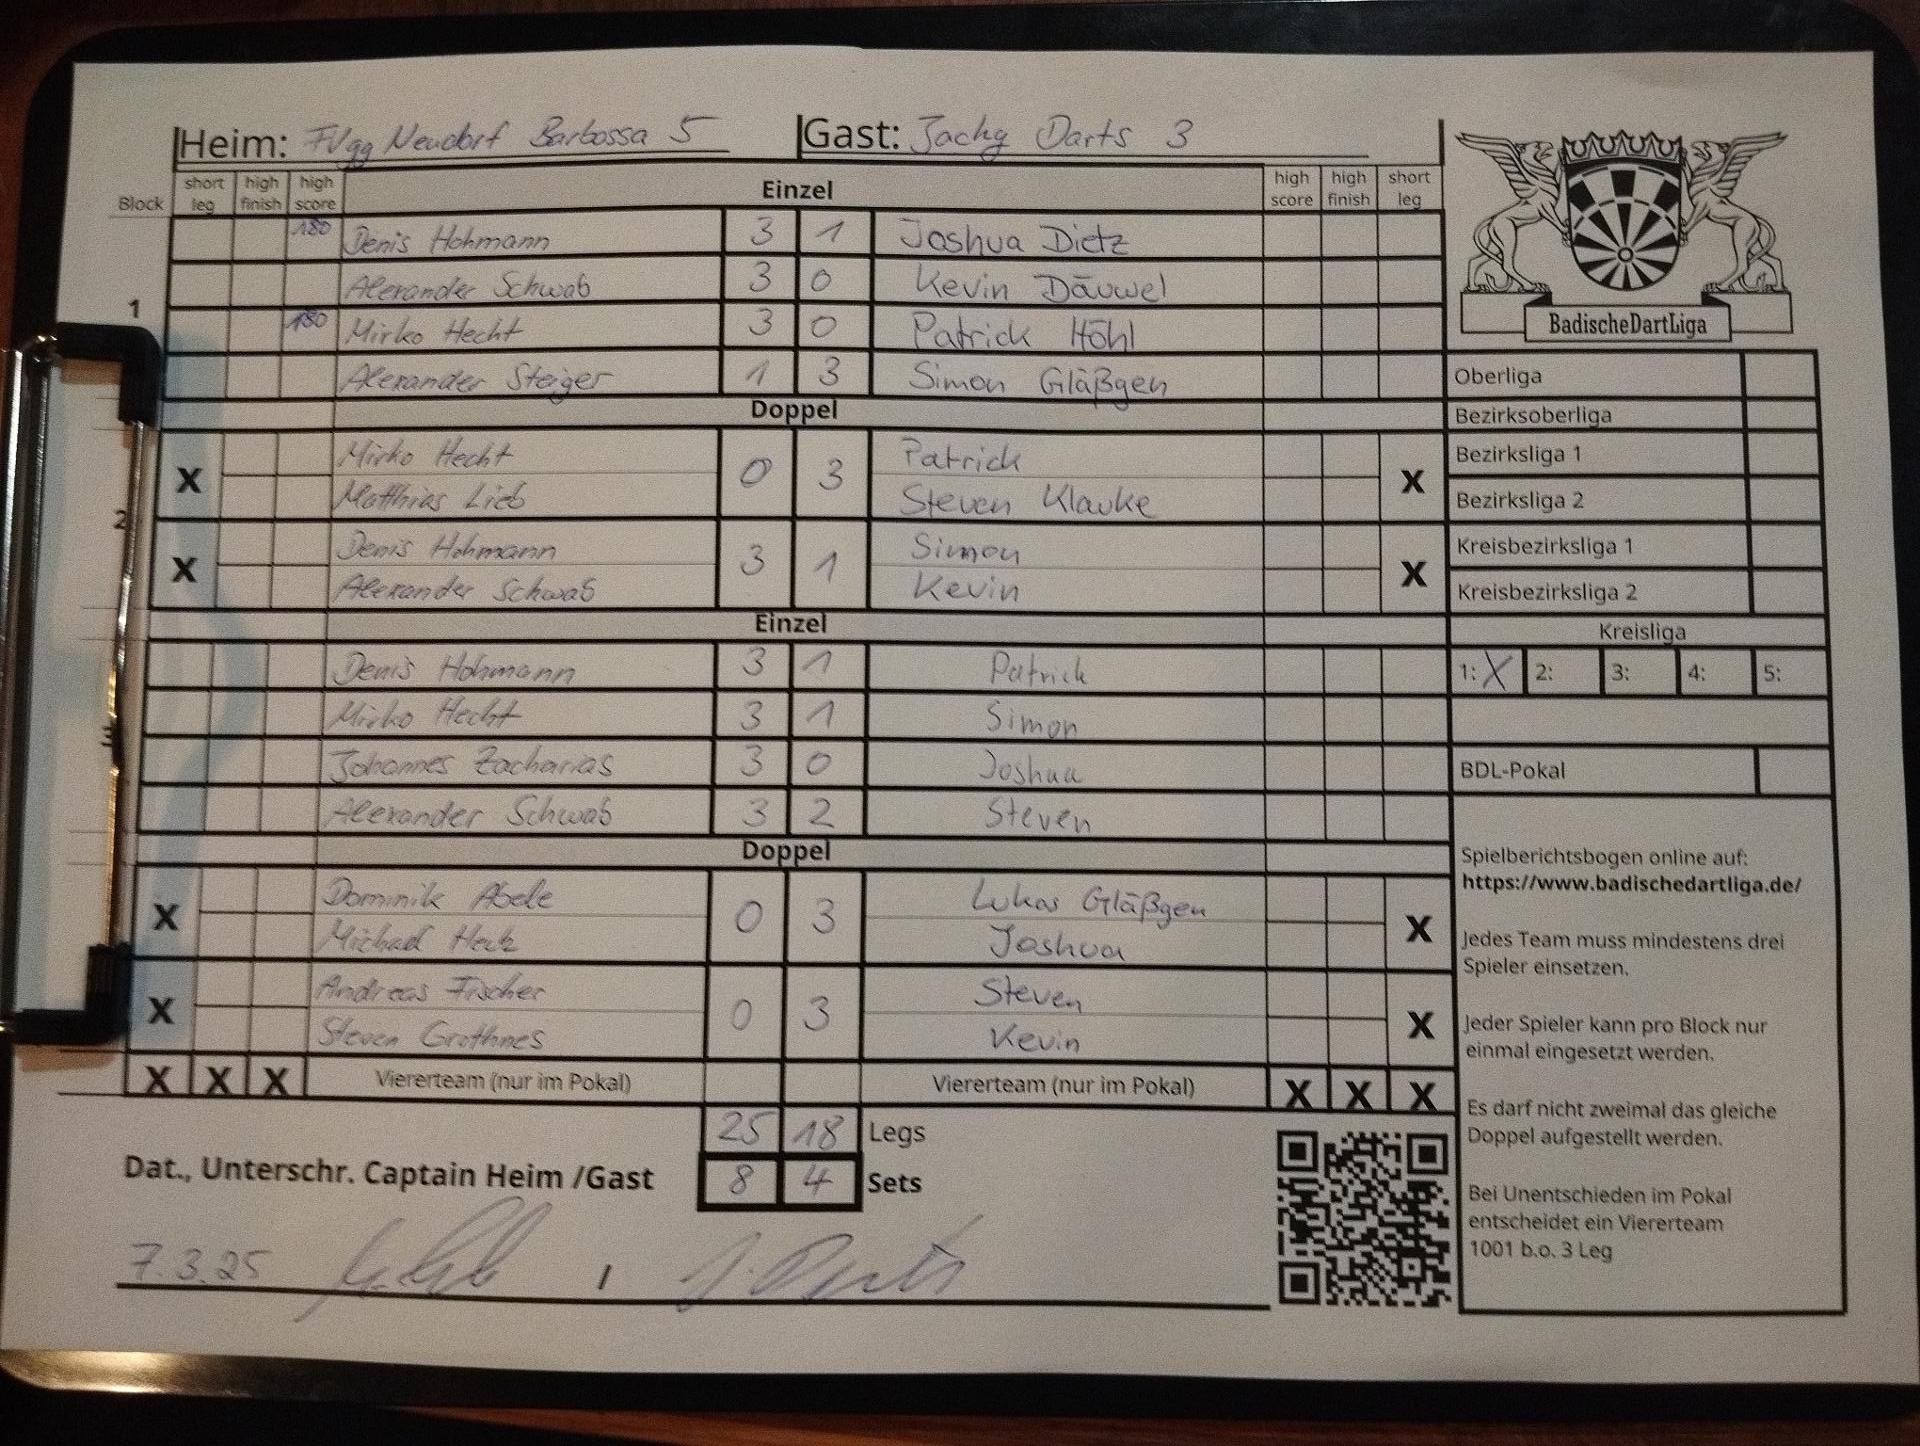 Heim: FVgg Neudorf Barbossa 5 Gast: Jachy Darts 3
Block short leg high finish high score Einzel high score high finish short leg
180 Denis Hohmann 3 1 Joshua Dietz
Alexander Schwab 3 0 Kevin Däuwel
1
180 Mirko Hecht 3 0 Patrick Höhl
Alexander Steiger 1 3 Simon Gläßgen
Doppel
X Mirko Hecht 0 3 Patrick X
Matthias Lieb Steven Klauke
2
X Denis Hohmann 3 1 Simon X
Alexander Schwab Kevin
Einzel
Denis Hohmann 3 1 Patrick
Mirko Hecht 3 1 Simon
3
Johannes Zacharias 3 0 Joshua
Alexander Schwab 3 2 Steven
Doppel
X Dominik Abele 0 3 Lukas Gläßgen X
Michael Joshua
X Andreas Fischer 0 3 Steven X
Steven Kevin
X X X Viererteam (nur im Pokal) Viererteam (nur im Pokal) X X X
25 18 Legs
Dat., Unterschr. Captain Heim /Gast 8 4 Sets
7.3.25 /
BadischeDartLiga
Oberliga
Bezirksoberliga
Bezirksliga 1
Bezirksliga 2
Kreisbezirksliga 1
Kreisbezirksliga 2
Kreisliga
1: X 2: 3: 4: 5:
BDL-Pokal
Spielberichtsbogen online auf:
https://www.badischedartliga.de/
Jedes Team muss mindestens drei
Spieler einsetzen.
Jeder Spieler kann pro Block nur
einmal eingesetzt werden.
Es darf nicht zweimal das gleiche
Doppel aufgestellt werden.
Bei Unentschieden im Pokal
entscheidet ein Viererteam
1001 b.o. 3 Leg